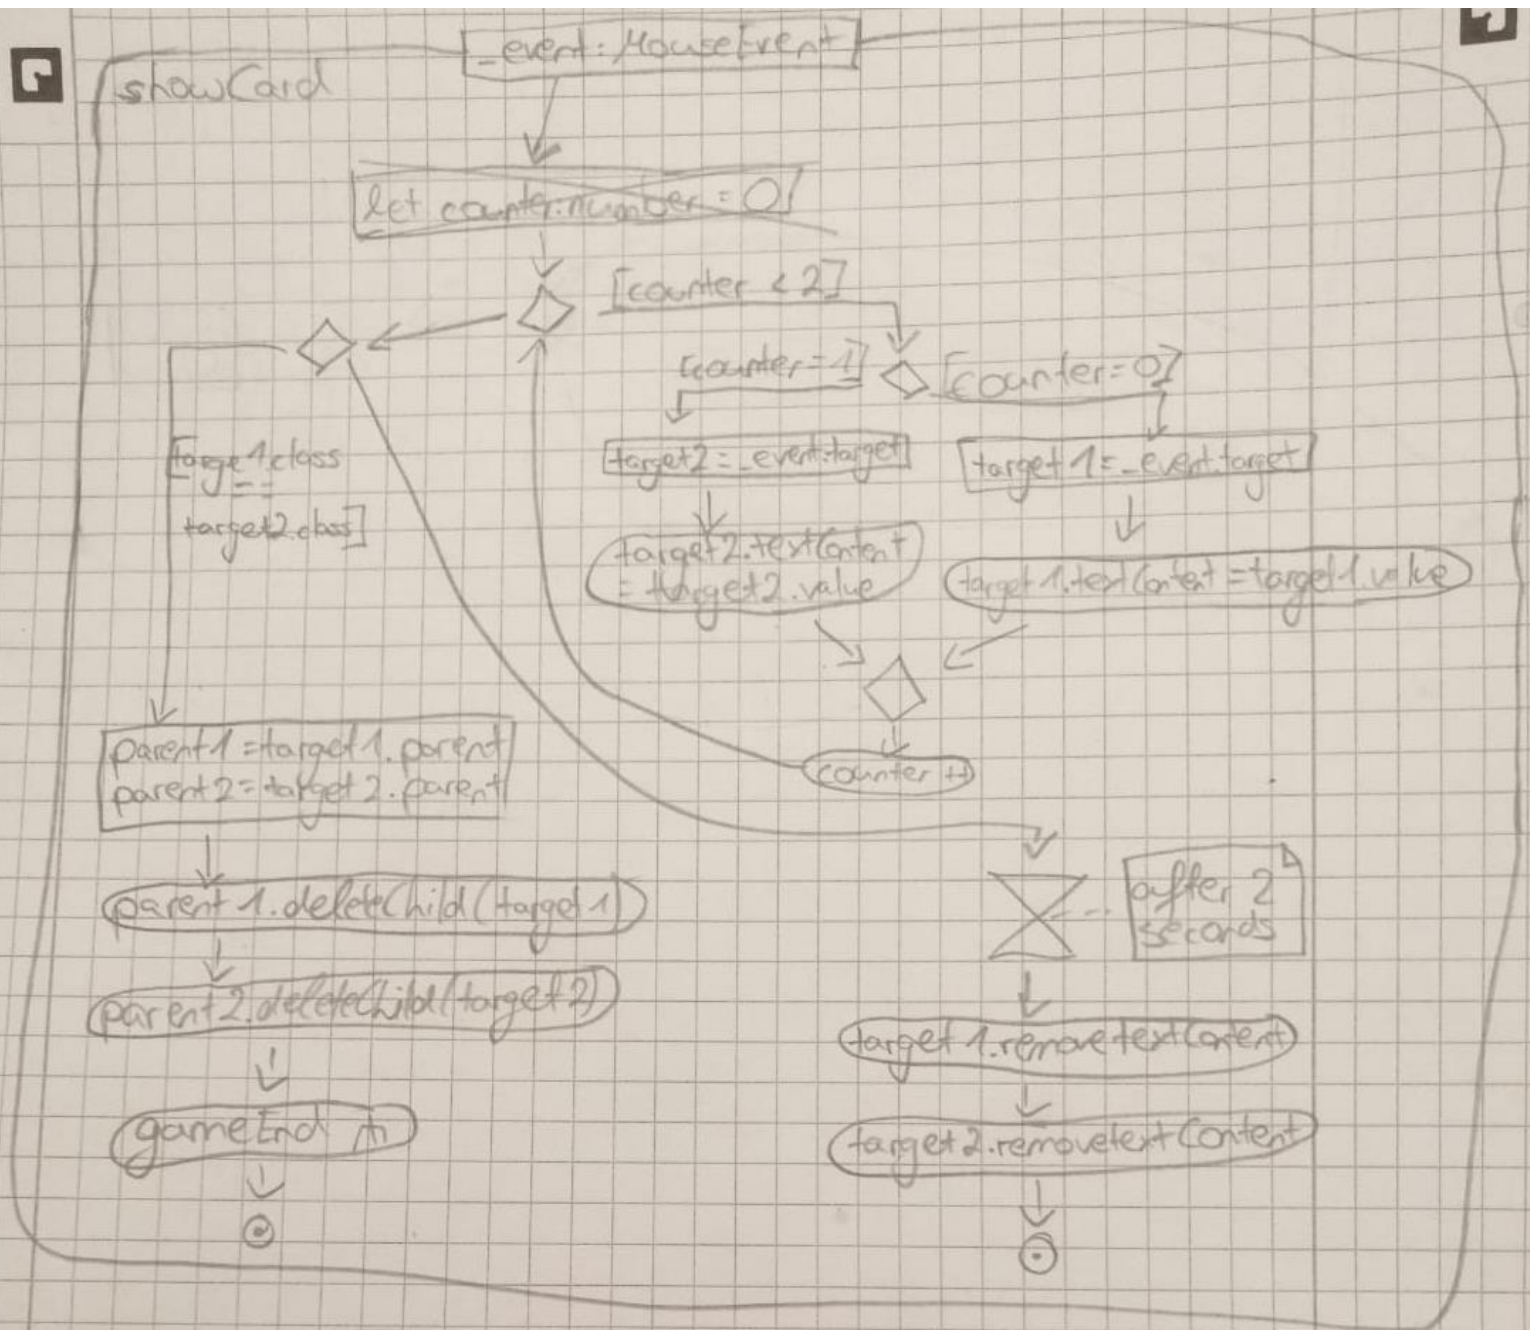 _event: MouseEvent
showCard
let counter:number = 0
[counter < 2]
[counter=1]
[counter=0]
[targe1.class
==
target2.class]
target2=_event.target
target1=_event.target
target2.textContent
= target2.value
target1.textContent=target1.value
counter ++
parent1=target1.parent
parent2=target2.parent
after 2
seconds
parent1.deleteChild(target1)
parent2.deleteChild(target2)
target1.removetextContent
gameEnd
target2.removetextContent